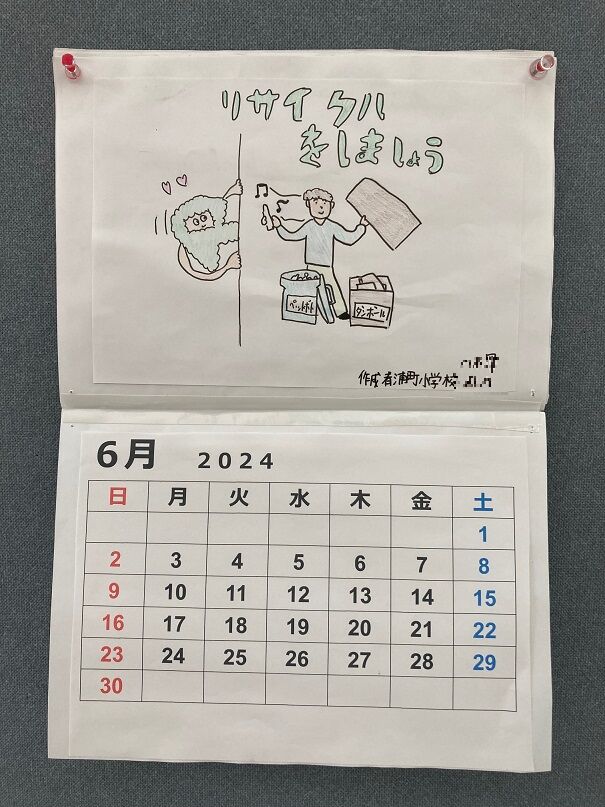 リサイクル
をしましょう
ペットボト
ダンボール
作成者浦町小学校
6月 2024
日 月 火 水 木 金 土
1
2 3 4 5 6 7 8
9 10 11 12 13 14 15
16 17 18 19 20 21 22
23 24 25 26 27 28 29
30